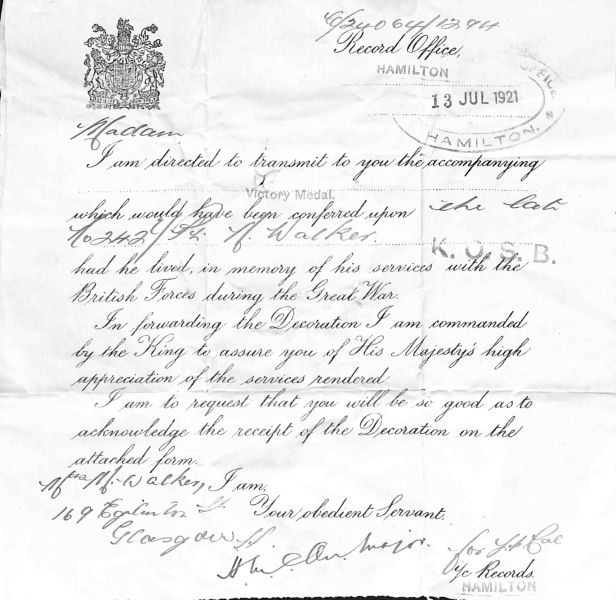 6/24064/1394
Record Office,
HAMILTON
13 JUL 1921
OFFICE
HAMILTON. N
Madam
I am directed to transmit to you the accompanying
Victory Medal.
which would have been conferred upon the late
No 242 / Pte Walker.
K.O.S.B.
had he lived, in memory of his services with the
British Forces during the Great War.
In forwarding the Decoration I am commanded
by the King to assure you of His Majesty's high
appreciation of the services rendered
I am to request that you will be so good as to
acknowledge the receipt of the Decoration on the
attached form.
Mrs M. Walker, I am,
169 Eglinton St Your obedient Servant.
Glasgow
Major. for Lt Col
i/c Records.
HAMILTON